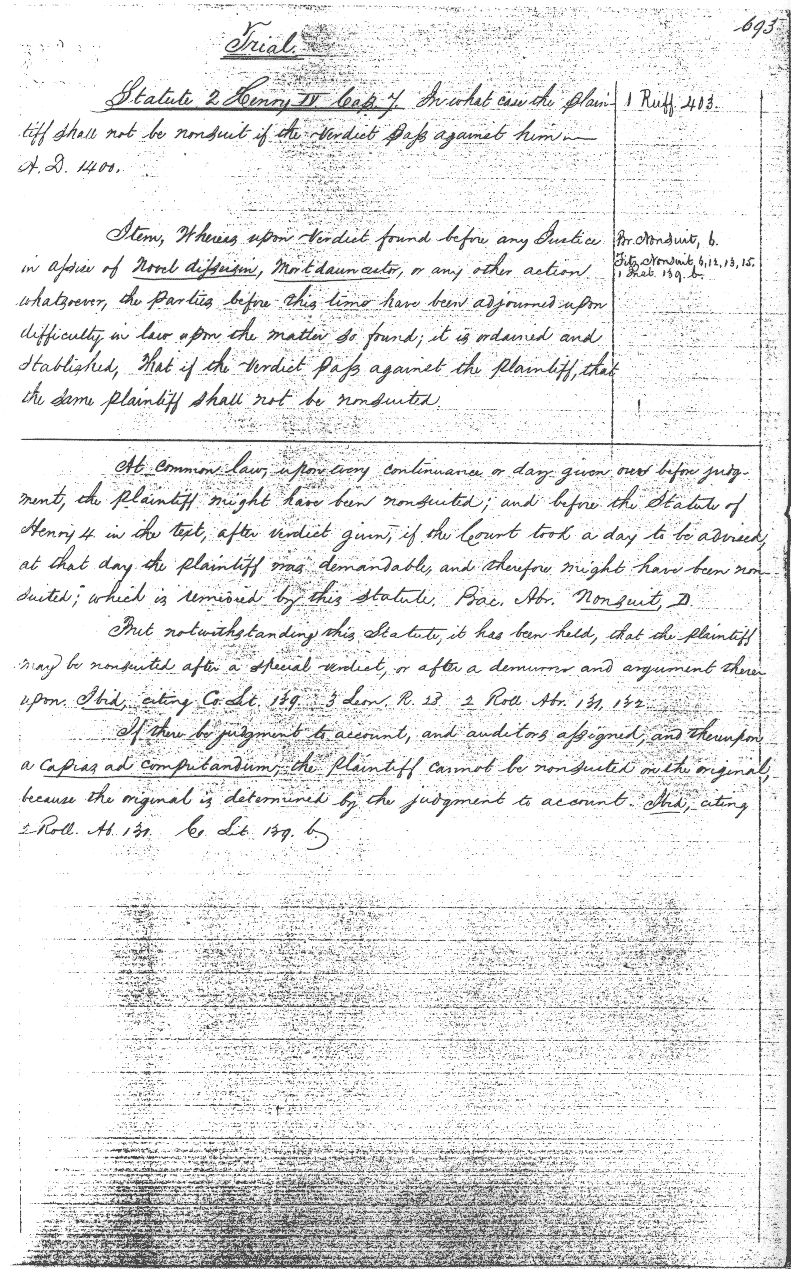 693
Trial.
Statute 2 Henry IV Cap. 7. In what case the plain-
tiff shall not be nonsuit if the Verdict Paſs against him —
A. D. 1400.
1 Ruff. 403.
Item, Whereas upon Verdict found before any Justice
in aſsise of Novel diſseizin, Mortdauncestor, or any other action
whatsoever, the Parties before this time have been adjourned upon
difficulty in law upon the matter so found; it is ordained and
stablished, That if the Verdict Paſs against the Plaintiff, that
the same Plaintiff shall not be nonsuited
Br. Nonsuit, 6.
Fitz. Nonsuit, 6, 12, 13, 15.
1 Inst. 139. b.
At common law, upon every continuance or day given over before judg-
ment, the plaintiff might have been nonsuited; and before the Statute of
Henry 4 in the text, after verdict given, if the Court took a day to be advised,
at that day the plaintiff was demandable, and therefore might have been non-
suited; which is remived by this statute. Bac. Abr. Nonsuit, D.
But notwithstanding this Statute, it has been held, that the plaintiff
may be nonsuited after a special verdict, or after a demurrer and argument there-
upon. Ibid, citing Co. Lit. 139. 3 Leon. R. 28 2 Roll Abr. 131, 132.
If there be judgment to account, and auditors aſsigned, and thereupon
a Capias ad computandum, the plaintiff cannot be nonsuited on the original,
because the original is determined by the judgment to account. Ibid, citing
2 Roll. Ab. 131. Co Lit. 139. b